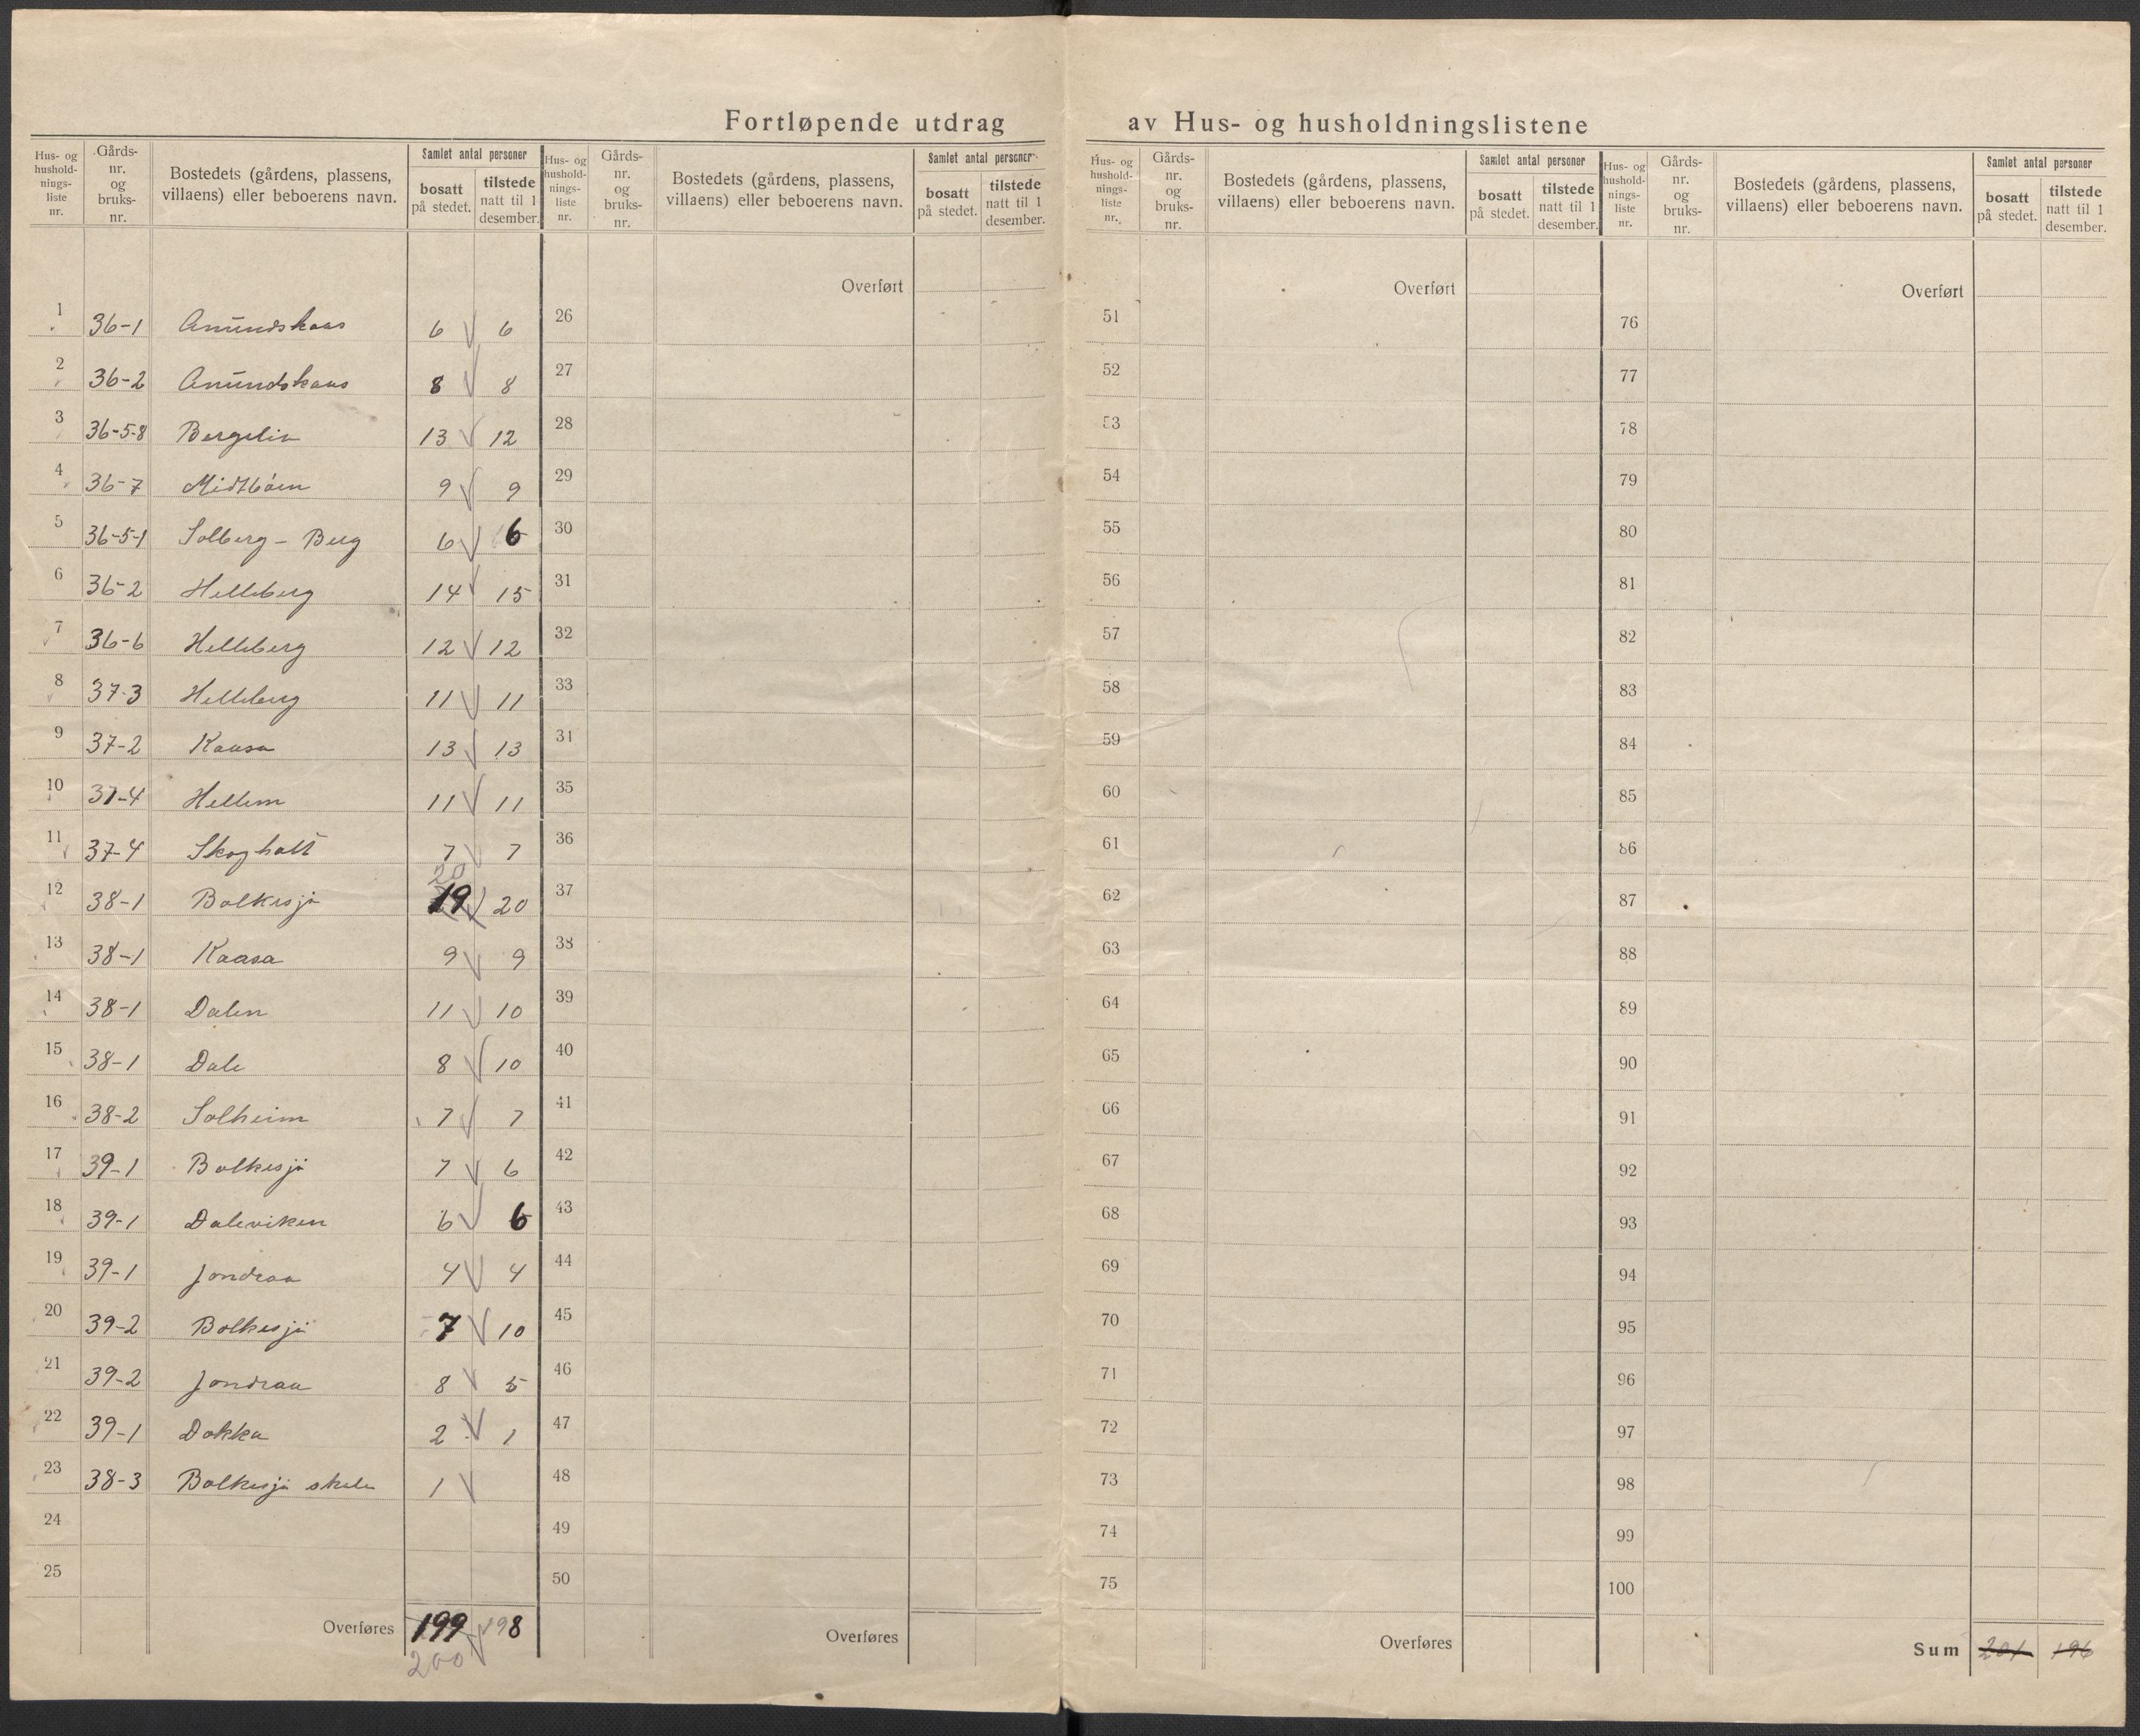 Fortløpende utdrag av Hus- og husholdningslistene
Hus- og husholdnings-liste nr. | Gårds-nr. og bruks-nr. | Bostedets (gårdens, plassens, villaens) eller beboerens navn. | Samlet antal personer | bosatt på stedet. | tilstede natt til 1 desember.
Hus- og husholdnings-liste nr. | Gårds-nr. og bruks-nr. | Bostedets (gårdens, plassens, villaens) eller beboerens navn. | Samlet antal personer | bosatt på stedet. | tilstede natt til 1 desember.
Hus- og husholdnings-liste nr. | Gårds-nr. og bruks-nr. | Bostedets (gårdens, plassens, villaens) eller beboerens navn. | Samlet antal personer | bosatt på stedet. | tilstede natt til 1 desember.
Hus- og husholdnings-liste nr. | Gårds-nr. og bruks-nr. | Bostedets (gårdens, plassens, villaens) eller beboerens navn. | Samlet antal personer | bosatt på stedet. | tilstede natt til 1 desember.
Overført Overført Overført
1 36-1 Anundskaas 6 6 26 51 76
2 36-2 Anundskaas 8 8 27 52 77
3 36-5-8 Bergelia 13 12 28 53 78
4 36-7 Midtbøen 9 9 29 54 79
5 36-5-1 Solberg - Berg 6 6 30 55 80
6 36-2 Helleberg 14 15 31 56 81
7 36-6 Helleberg 12 12 32 57 82
8 37-3 Helleberg 11 11 33 58 83
9 37-2 Kaasa 13 13 31 59 84
10 37-4 Hellem 11 11 35 60 85
11 37-4 Skogholt 7 7 36 61 86
20
12 38-1 Bolkesjø 19 20 37 62 87
13 38-1 Kaasa 9 9 38 63 88
14 38-1 Dalen 11 10 39 64 89
15 38-1 Dale 8 10 40 65 90
16 38-2 Solheim 7 7 41 66 91
17 39-1 Bolkesjø 7 6 42 67 92
18 39-1 Daleviken 6 6 43 68 93
19 39-1 Jondraa 4 4 44 69 94
20 39-2 Bolkesjø 7 10 45 70 95
21 39-2 Jondraa 8 5 46 71 96
22 39-1 Dokka 2 1 47 72 97
23 38-3 Bolkesjø skole 1 48 73 98
24 49 74 99
25 50 75 100
Overføres 199 198 Overføres Overføres Sum 201 196
200